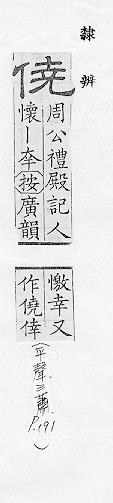 隸辨
僥
周公禮殿記人
懷丨㚔按廣韻
憿幸又
作僥倖
(平聲三蕭.P.191)